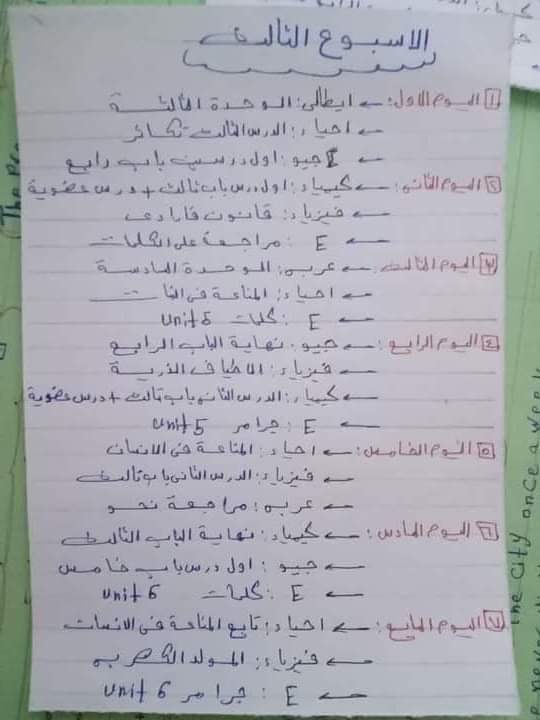 الاسبوع الثالث
١ اليوم الاول: ← ايطالى: الوحدة الثالثة
← احياء: الدرس الثالث تكاثر
← جيو: اول درسين باب رابع
٢ اليوم الثانى: ← كيمياء: اول درس باب ثالث + درس عضوية
← فيزياء: قانون فاراداى
← E : مراجعة على الكلمات
٣ اليوم الثالث: ← عربى: الوحدة السادسة
← احياء: المناعة فى النبات
← E : كلمات unit 5
٤ اليوم الرابع: ← جيو: نهاية الباب الرابع
← فيزياء: الاطياف الذرية
← كيمياء: الدرس الثانى باب ثالث + درس عضوية
← E : جرامر unit 5
٥ اليوم الخامس: ← احياء: المناعة فى الانسان
← فيزياء: الدرس الثانى باب ثالث
← عربى: مراجعة نحو
٦ اليوم السادس: ← كيمياء: نهاية الباب الثالث
← جيو: اول درس باب خامس
← E : كلمات unit 6
٧ اليوم السابع: ← احياء: تابع المناعة فى الانسان
← فيزياء: المولد الكهربى
← E : جرامر unit 6
the city once a week